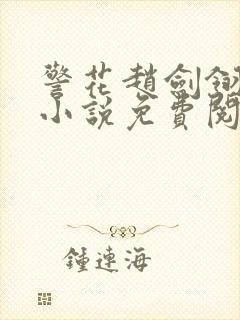 警花趙劍釵
小說免費閱
鍾連海